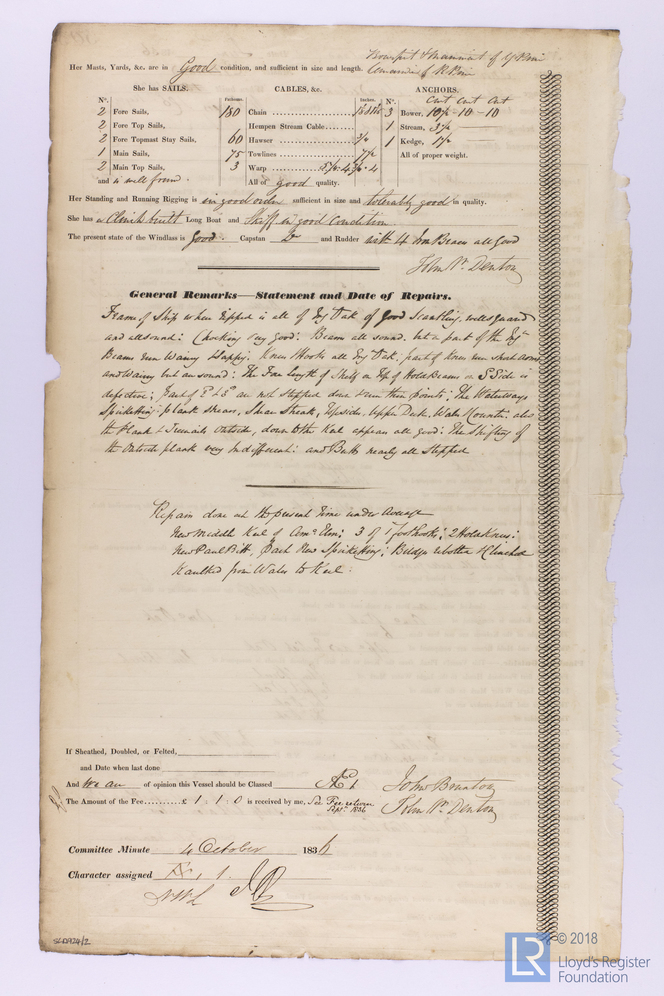 Bowsprit & Mainmast of Y Pine
Her Masts, Yards, &c. are in Good condition, and sufficient in size and length. of R Pine
She has SAILS. CABLES, &c. ANCHORS.
N°. Fathoms. Inches. N°. Cwt Cwt Cwt
2 Fore Sails, 180 Chain 3 Bower, 10½ - 10 - 10
2 Fore Top Sails, Hempen Stream Cable 1 Stream, 3½
2 Fore Topmast Stay Sails, 60 Hawser 1 Kedge, 1½
1 Main Sails, 75 Towlines 7½ All of proper weight.
2 Main Top Sails, 3 Warp
and is well found. All of good quality.
Her Standing and Running Rigging is in good order sufficient in size and tolerably good in quality.
She has a Clinch built Long Boat and Skiff in good condition
The present state of the Windlass is Good Capstan Do and Rudder with 4 Iron Braces all Good
John Wm. Denton
General Remarks—Statement and Date of Repairs.
Frame of Ship when stepped is all of Eng Oak of Good Scantling, well squared
and all sound: Chocking very good: Beams all sound, but a part of the Eng
Beams are Wainy & Sappy. Knees Hooks all Eng Oak, part of Knees are short arms
and Wainy but are sound: The Fore length of Shelf on top of Hold Beams on S Side is
defective; part of are not stepped down over their points: The Waterways
Spirketting: plank shears, Shear Streak, Topside, Upper Deck, Wales & Counter: also
the Plank & Treenails outside, down to the Keel appear all good: The Shifting of
the Outside plank very Indifferent: and Butts nearly all Stepped
Repairs done at the present time under Average
New Middle Keel of Amn Elm; 3 of 1 foothooks; 2 Hold Knees:
New Paul Bitt, Part New Spirketting; Bilges & Clinched
Kaulked from Wales to Keel:
If Sheathed, Doubled, or Felted,
and Date when last done
And We are of opinion this Vessel should be Classed Æ 1
John Brunton
The Amount of the Fee..........£ 1 : 1 : 0 is received by me, See Fee return Septr. 1836
John Wm. Denton
Committee Minute 4 October 1836
Character assigned Æ, 1.
SLD924/2
© 2018
LR Lloyd's Register
Foundation